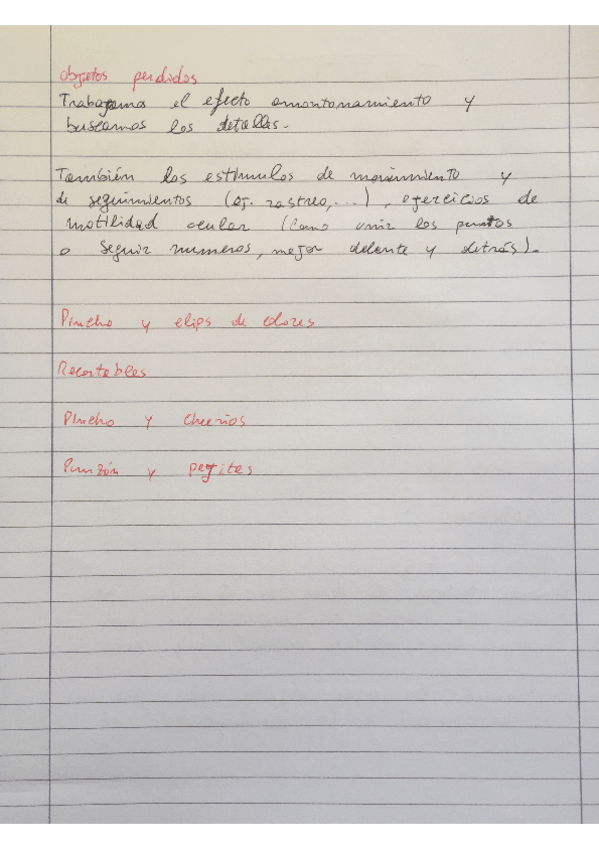 Objetos perdidos
Trabajamos el efecto amontonamiento y
buscamos los detalles.
También los estímulos de movimiento y
de seguimientos (ej. rastreo,...), ejercicios de
motilidad ocular (como unir los puntos
o seguir numeros, mejor delante y detrás).
Pincho y clips de colores
Recortables
Pincho y cheerios
Punzón y pegites